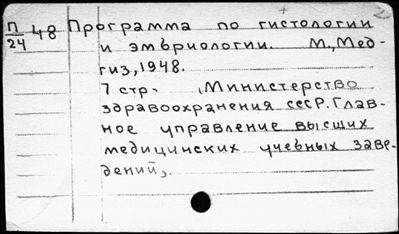 П/24 48 Программа по гистологии
и эмбриологии. М., Мед-
гиз, 1948.
7 стр. (Министерство
здравоохранения СССР. Глав-
ное управление высших
медицинских учебных заве-
дений).